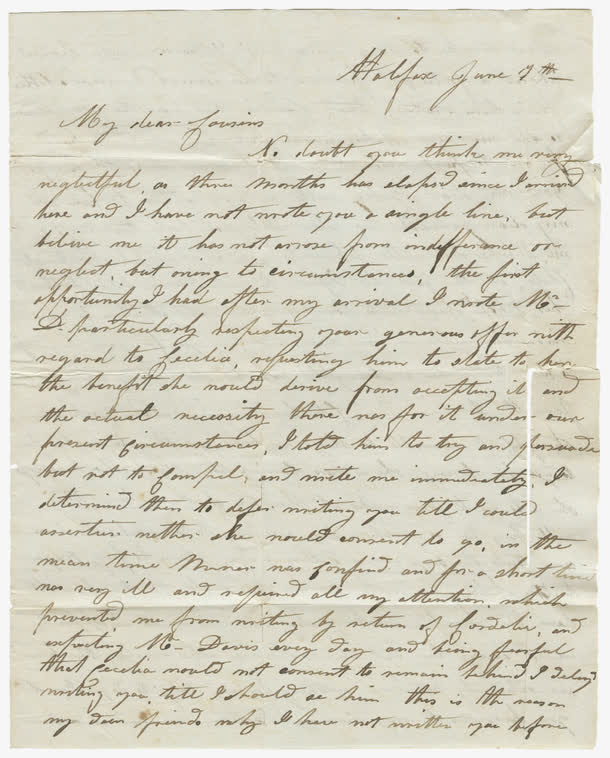 Halifax June 7th
My dear Cousins
No doubt you think me very
neglectful, as three months has elapsd since I arrived
here and I have not wrote you a single line, but
belive me it has not arrose from indifference or
neglect, but owing to circumstances, the first
opportunity I had after my arrival I wrote Mr
D. particularly respecting your generous offer with
regard to Cecelia, requesting him to state to her
the benefit she would derive from accepting it and
the actual necessity there was for it under our
present Circumstances, I told him to try and persuade
but not to Compel, and write me immediately I
determined then to defer writing you till I could
assertain wether she would consent to go, in the
mean time was Confind and for a short time
was very ill and required all my attention which
prevented me from writing by return of Cordelia, and
expecting Mr Davis every day and being fearful
that Cecelia would not consent to remain behind I delayd
writing you till I should se him this is the reason
my dear friends why I have not written you before